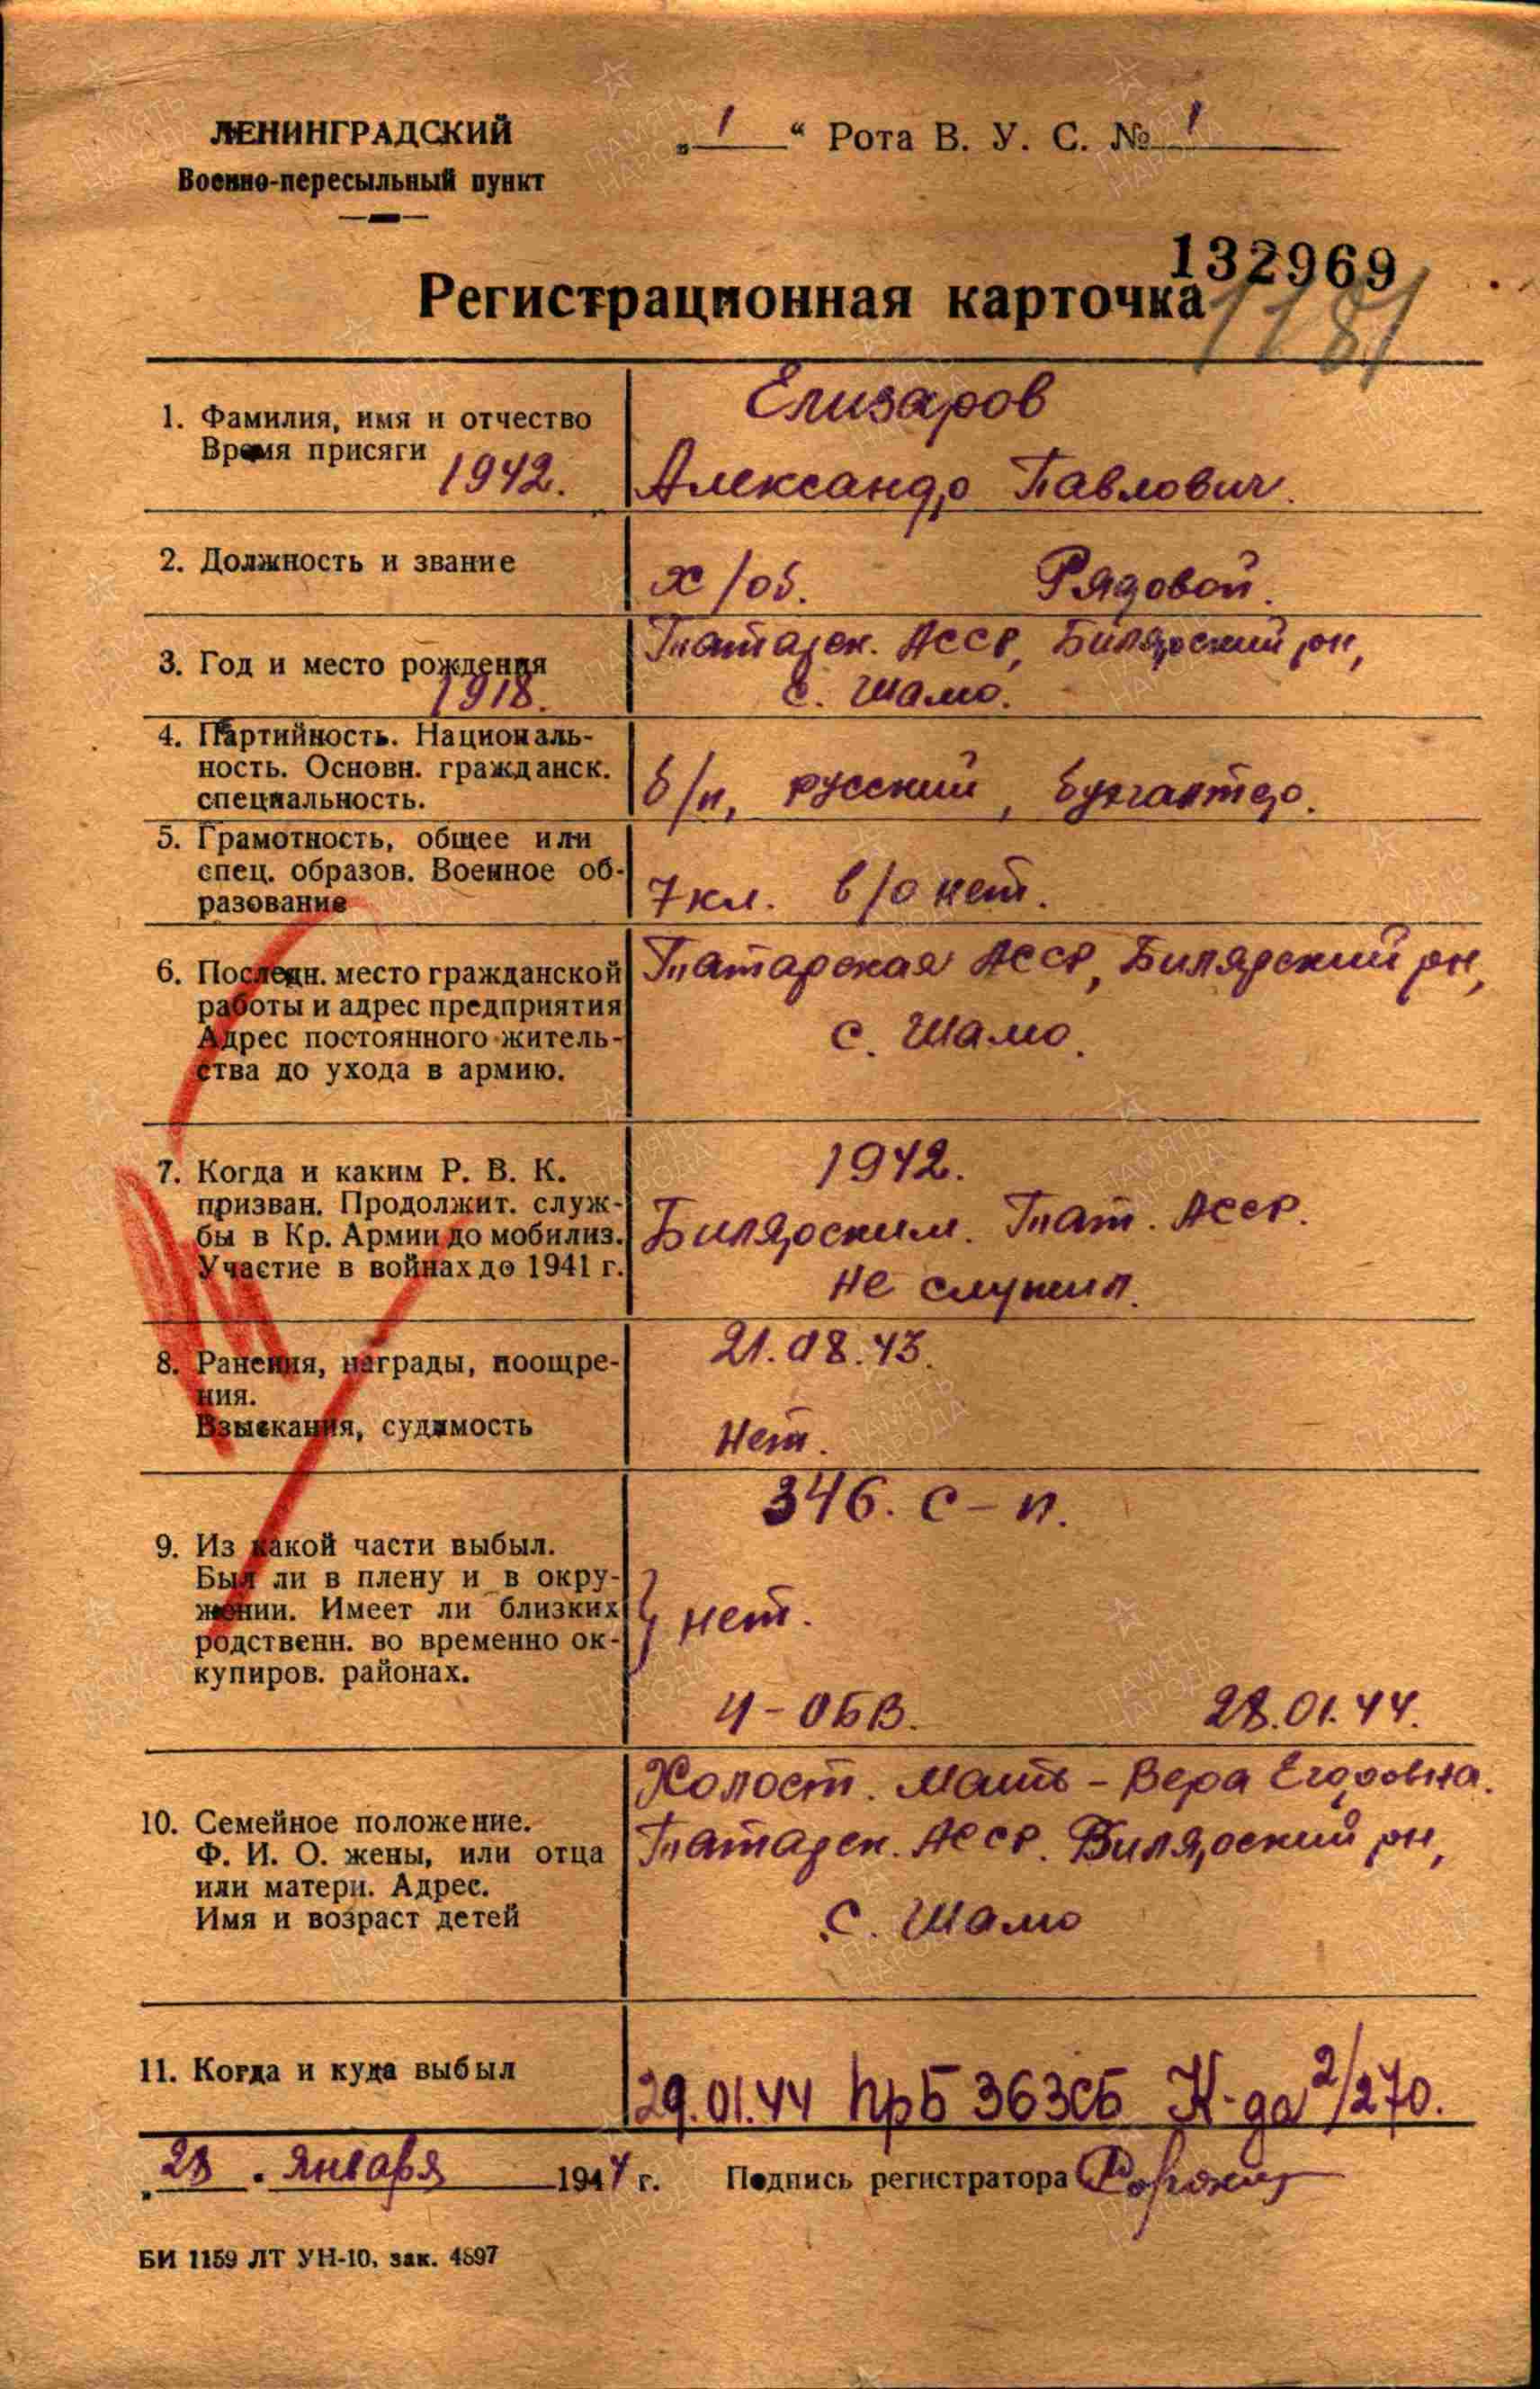 ЛЕНИНГРАДСКИЙ
Военно-пересыльный пункт
„ 1 “ Рота В. У. С. № 1
132969
Регистрационная карточка
1181
1. Фамилия, имя и отчество
Время присяги
1942.
Елизаров
Александр Павлович.
2. Должность и звание
х/об. Рядовой.
3. Год и место рождения
1918.
Татарск. АССР, Билярский рн,
с. Шамо.
4. Партийность. Националь-
ность. Основн. гражданск.
специальность.
б/п, русский, бухгалтер.
5. Грамотность, общее или
спец. образов. Военное об-
разование
7 кл. в/о нет.
6. Последн. место гражданской
работы и адрес предприятия
Адрес постоянного житель-
ства до ухода в армию.
Татарская АССР, Билярский рн,
с. Шамо.
7. Когда и каким Р. В. К.
призван. Продолжит. служ-
бы в Кр. Армии до мобилиз.
Участие в войнах до 1941 г.
1942.
Билярским. Тат. АССР.
не служил.
8. Ранения, награды, поощре-
ния.
Взыскания, судимость
21.08.43.
нет.
9. Из какой части выбыл.
Был ли в плену и в окру-
жении. Имеет ли близких
родственн. во временно ок-
купиров. районах.
346. с-п.
} нет.
4-ОБВ. 28.01.44.
10. Семейное положение.
Ф. И. О. жены, или отца
или матери. Адрес.
Имя и возраст детей
Холост. Мать - Вера Егоровна.
Татарск. АССР. Билярский рн,
с. Шамо
11. Когда и куда выбыл
29.01.44 прб 363СБ К-да 2/270.
„ 28 . января 1944 г. Подпись регистратора
БИ 1159 ЛТ УН-10, зак. 4897
ПАМЯТЬ НАРОДА